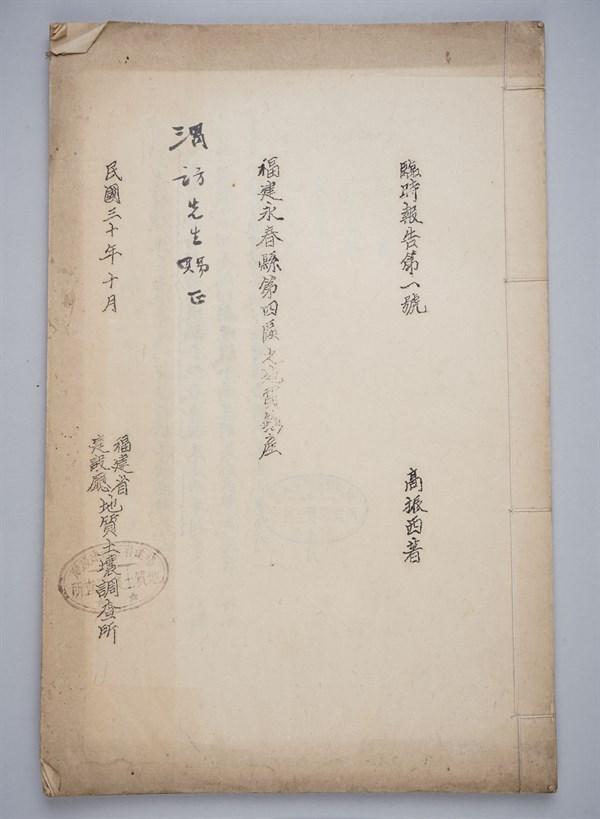 臨時報告第一號
高振西著
福建永春縣第四區之地質鑛產
渭訪先生賜正
民國三十年十月
福建省
建設廳
地質土壤調查所